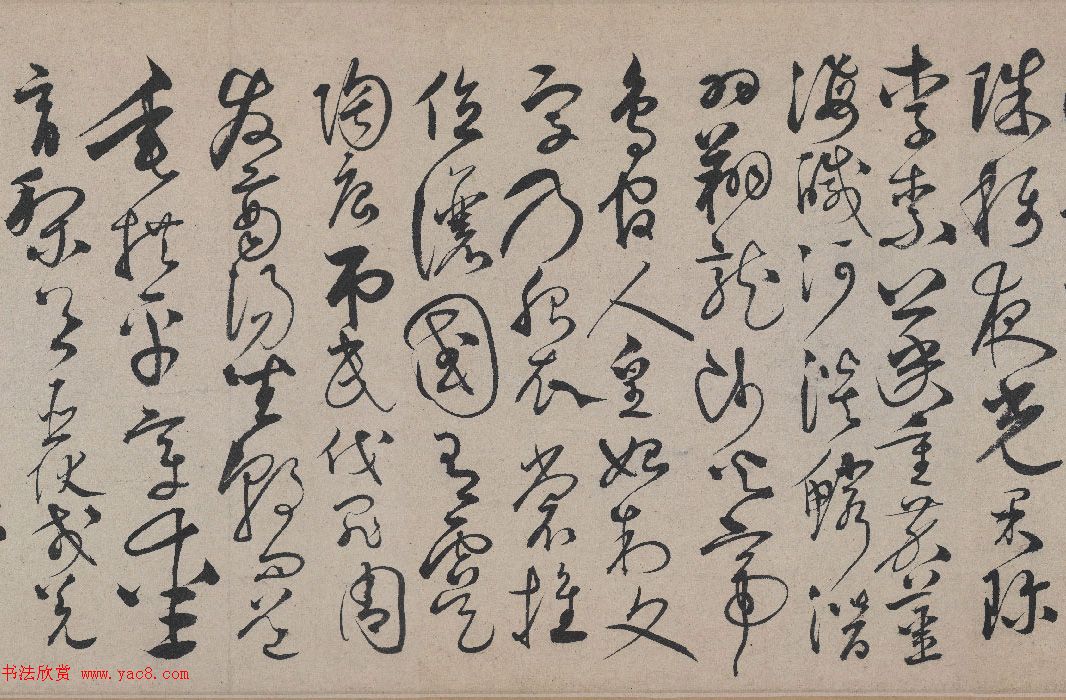 珠稱夜光果珍
李柰菜重芥薑
海鹹河淡鱗潛
羽翔龍師火帝
鳥官人皇始制文
字乃服衣裳推
位讓國有虞
陶唐弔民伐罪周
發商湯坐朝問道
垂拱平章
育黎首臣伏戎羌
书法欣赏 www.yac8.com